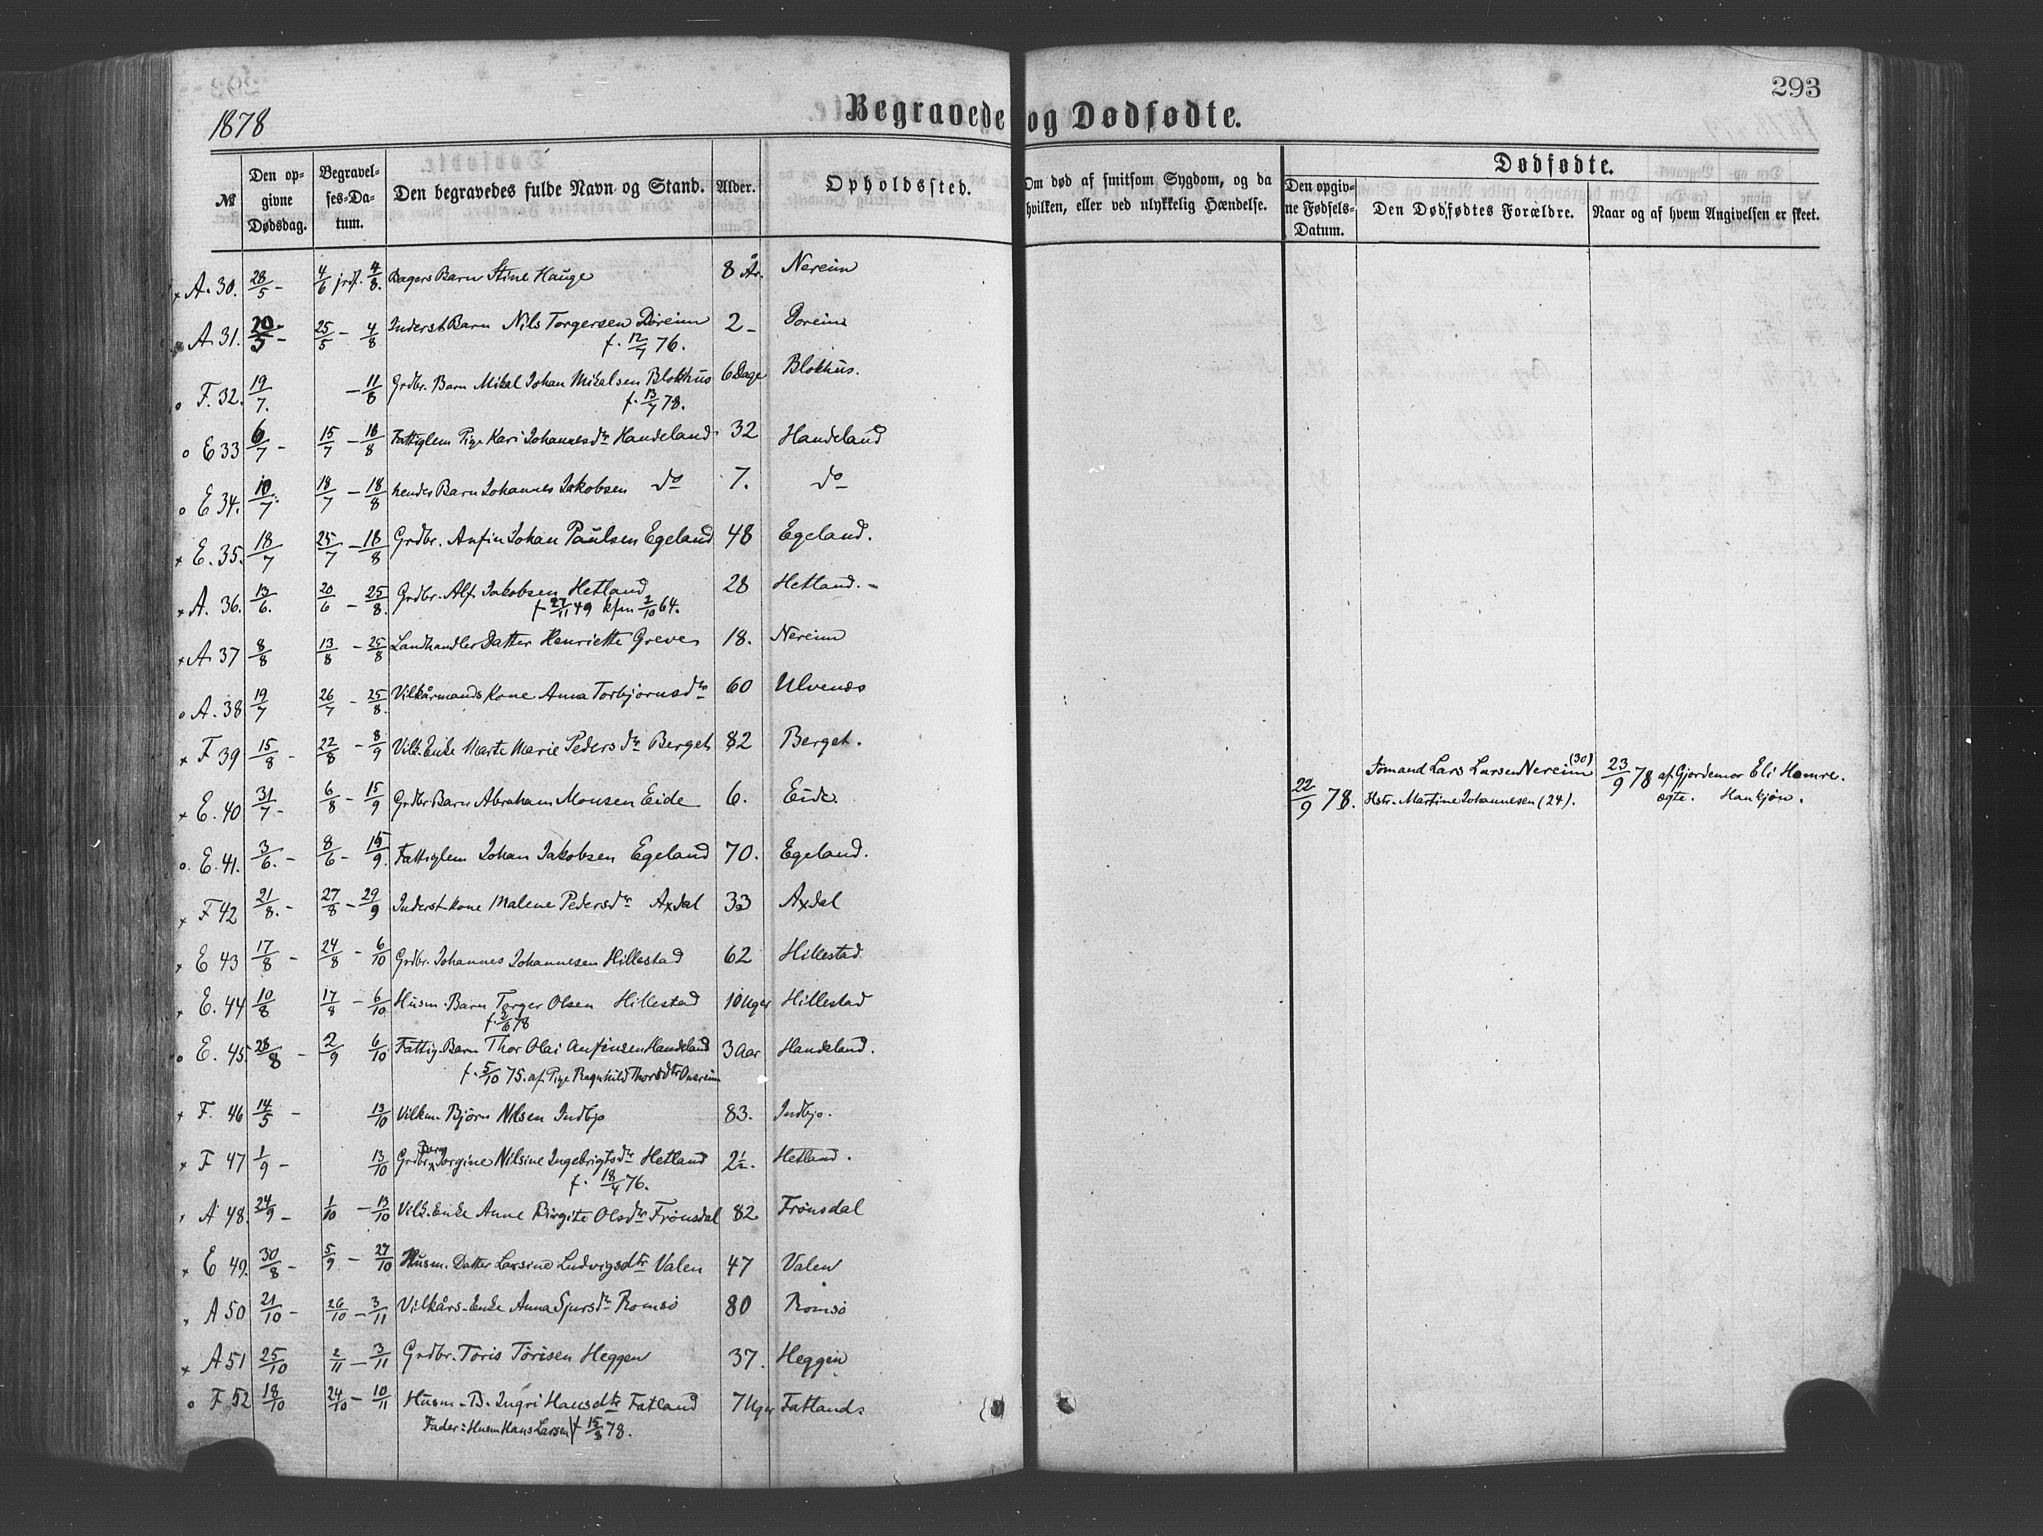 293
1878
Begravede og Dødfødte.
№
Den opgivne Dødsdag.
Begravelses-Datum.
Den begravedes fulde Navn og Stand.
Alder.
Opholdssted.
Om død af smitsom Sygdom, og da hvilken, eller ved ulykkelig Hændelse.
Dødfødte.
Den opgivne Fødsels-Datum.
Den Dødfødtes Forældre.
Naar og af hvem Angivelsen er skeet.
x A. 30. 28/5 - 4/6 jrdf. 4/8. Bagers Barn Stine Hauge 8 År. Nereim
A 31. 20/5 - 25/5 - 4/8 Inderst Barn Nils Torgersen Doreim 2 - Doreim
f. 12/7 76.
o F. 32. 19/7. - 11/8 Grdbr. Barn Mikal Johan Mikalsen Blokhus 6 Dage Blokhus.
f. 13/7 78.
o E 33 6/7 - 15/7 - 18/8 Fattiglem Pige Kari Johannesdtr Handeland 32 Handeland
o E 34. 10/7. 18/7 - 18/8 hendes Barn Johannes Jakobsen do 7. do
x E. 35. 18/7 25/7 - 18/8 Grdbr. Anfin Johan Paulsen Egeland 48 Egeland.
x A. 36. 13/6. 20/6 - 25/8. Grdbr. Alf Jakobsen Hetland 28 Hetland. -
f 27/11 49 kfm 2/10 64.
x A 37 8/8 13/8 - 25/8 Landhandler Datter Henriette Greve 18. Nereim
o A. 38 19/7 26/7 - 25/8. Vilkårmands Kone Anna Torbjørnsdtr 60 Ulvenes
x F 39 15/8 - 22/8 - 8/9 Vilk. Enke Marte Marie Pedersdtr Berget 82 Berget.
22/9 78. Sømand Lars Larsen Nereim (30) 23/9 78 af Gjordemor Eli Hamre.
Hstr. Martine Johannesen (24). ægte. Hankjøn.
x E. 40 31/7 - 6/8 - 15/9 Grdbr Barn Abraham Monsen Eide 6. Eide.
o. E. 41. 3/6. - 8/6 - 15/9. Fattiglem Johan Jakobsen Egeland 70. Egeland.
x F 42 21/8. - 27/8 - 29/9 Inderst kone Malene Pedersdtr Axdal 33 Axdal
x E 43 17/8 - 24/8 - 6/10 Grdbr. Johannes Johannesen Hillestad 62 Hillestad
x E. 44 10/8 17/8 - 6/10 Husm. Barn Torger Olsen Hillestad 10 Uger Hillestad
f. 2/6 78
o E. 45. 28/8 - 2/9 6/10 Fattig. Barn Thor Olai Anfinsen Handeland 3 Aar Handeland.
f. 5/10 75. af Pige Ragnhild Thorsdtr
x F. 46 14/5 - 13/10 Vilkm. Bjørn Nilsen Indbjo 83. Indbjo.
x F 47 1/9 - 13/10 Grdbr. Barn Jorgine Nilsine Ingebrigtsdtr Hetland 2½. Hetland.
f. 18/4 76.
A 48. 24/9 - 1/10 - 13/10 Vilk. Enke Anne Birgite Olsdtr Frønsdal 82 Frønsdal
x E 49. 30/8 - 5/9 - 27/10 Husm. Datter Larsine Ludvigsdtr Valen 47 Valen
A 50 21/10 - 26/10 - 3/11 Vilkårs-Enke Anna Sjursdtr Romsø 80 Romsø
x A 51 25/10 2/11 - 3/11 Grdbr. Toris Torisen Heggen 37. Heggen
o F 52 18/10 24/10 - 10/11 Husm. B. Ingri Hansdtr Fatland 7 Uger Fatland.
Fader: Husm Hans Larsen f 15/8 78.